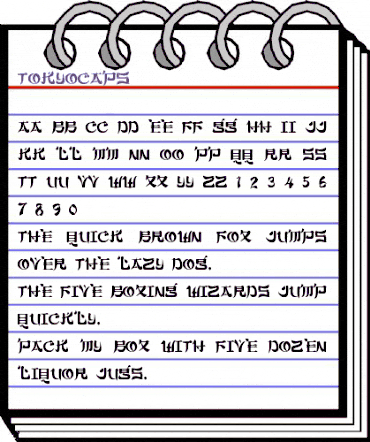 TOKYOCAPS
AA BB CC DD EE FF GG HH II JJ
KK LL MM NN OO PP QQ RR SS
TT UU VV WW XX YY ZZ 1 2 3 4 5 6
7 8 9 0
THE QUICK BROWN FOX JUMPS
OVER THE LAZY DOG.
THE FIVE BOXING WIZARDS JUMP
QUICKLY.
PACK MY BOX WITH FIVE DOZEN
LIQUOR JUGS.